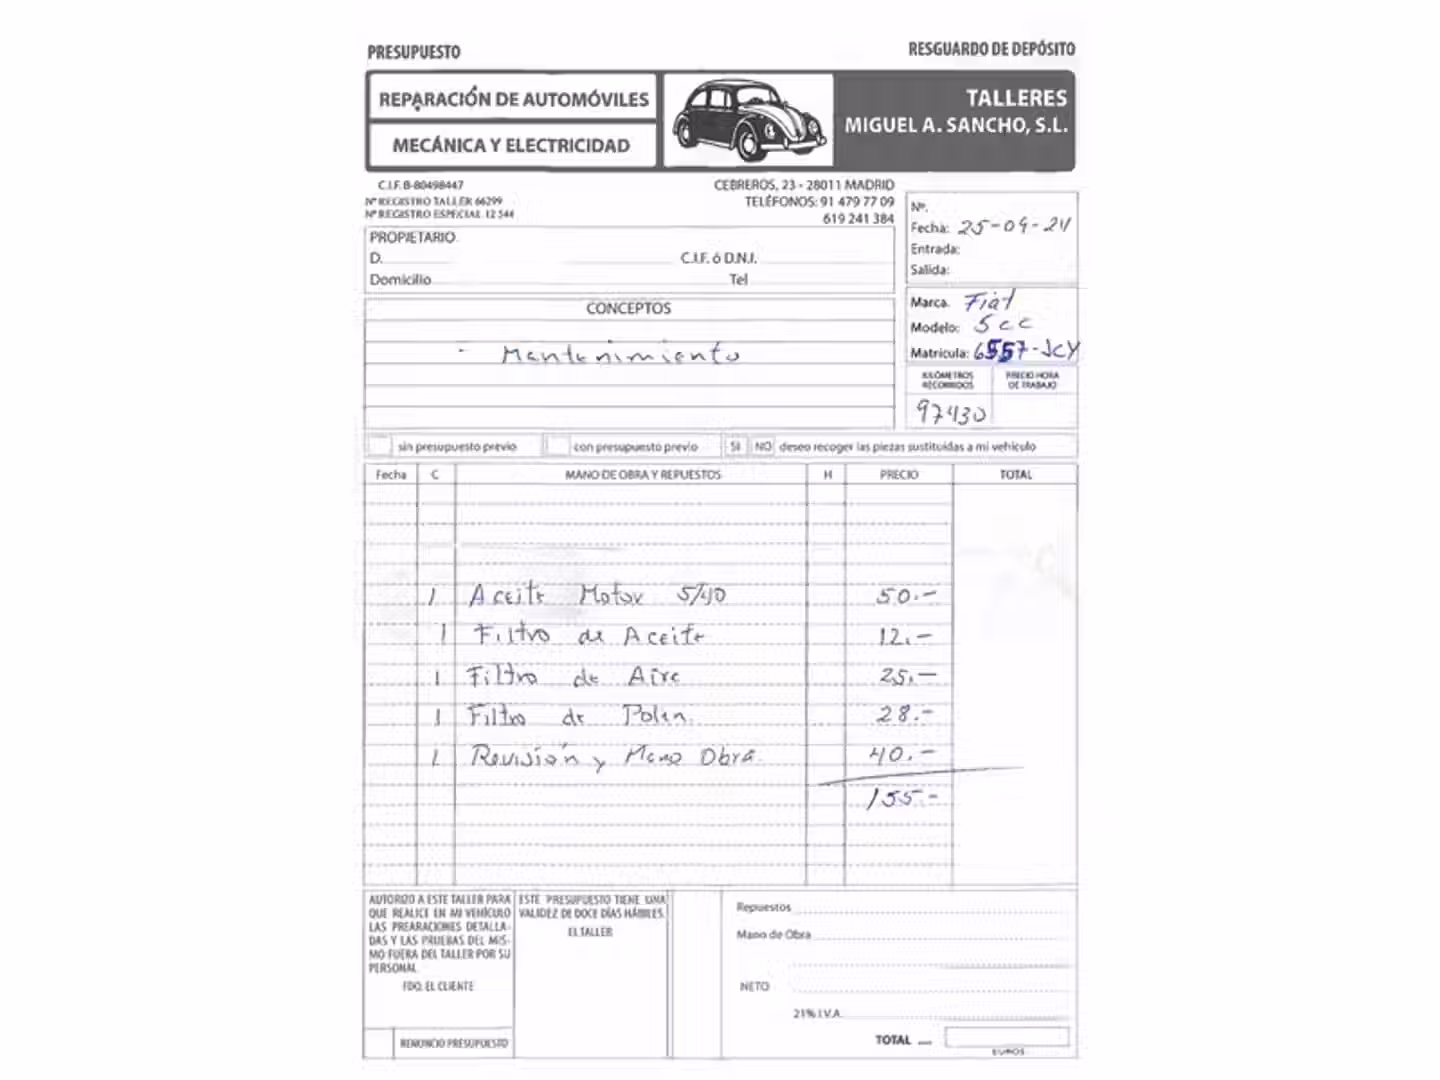 PRESUPUESTO
RESGUARDO DE DEPÓSITO
REPARACIÓN DE AUTOMÓVILES
MECÁNICA Y ELECTRICIDAD
TALLERES
MIGUEL A. SANCHO, S.L.
C.I.F. B-80498447
Nº REGISTRO TALLER 66299
Nº REGISTRO ESPECIAL 12 544
CEBREROS, 23 - 28011 MADRID
TELÉFONOS: 91 479 77 09
619 241 384
Nº.
Fecha: 25-04-24
Entrada:
Salida:
PROPIETARIO
D. C.I.F. ó D.N.I.
Domicilio Tel
Marca. Fiat
Modelo: 5cc
Matrícula: 6557-JCY
KILÓMETROS RECORRIDOS
PRECIO HORA DE TRABAJO
97430
CONCEPTOS
- Mantenimiento
sin presupuesto previo con presupuesto previo SI NO deseo recoger las piezas sustituidas a mi vehículo
Fecha C MANO DE OBRA Y REPUESTOS H PRECIO TOTAL
1 Aceite Motor 5/40 50.-
1 Filtro de Aceite 12.-
1 Filtro de Aire 25.-
1 Filtro de Polen. 28.-
1 Revisión y Mano Obra. 40.-
155-
AUTORIZO A ESTE TALLER PARA
QUE REALICE EN MI VEHÍCULO
LAS PREARACIONES DETALLA-
DAS Y LAS PRUEBAS DEL MIS-
MO FUERA DEL TALLER POR SU
PERSONAL
FDO. EL CLIENTE
RENUNCIO PRESUPUESTO
ESTE PRESUPUESTO TIENE UNA
VALIDEZ DE DOCE DÍAS HÁBILES.
EL TALLER
Repuestos
Mano de Obra
NETO
21% I.V.A.
TOTAL ....
EUROS